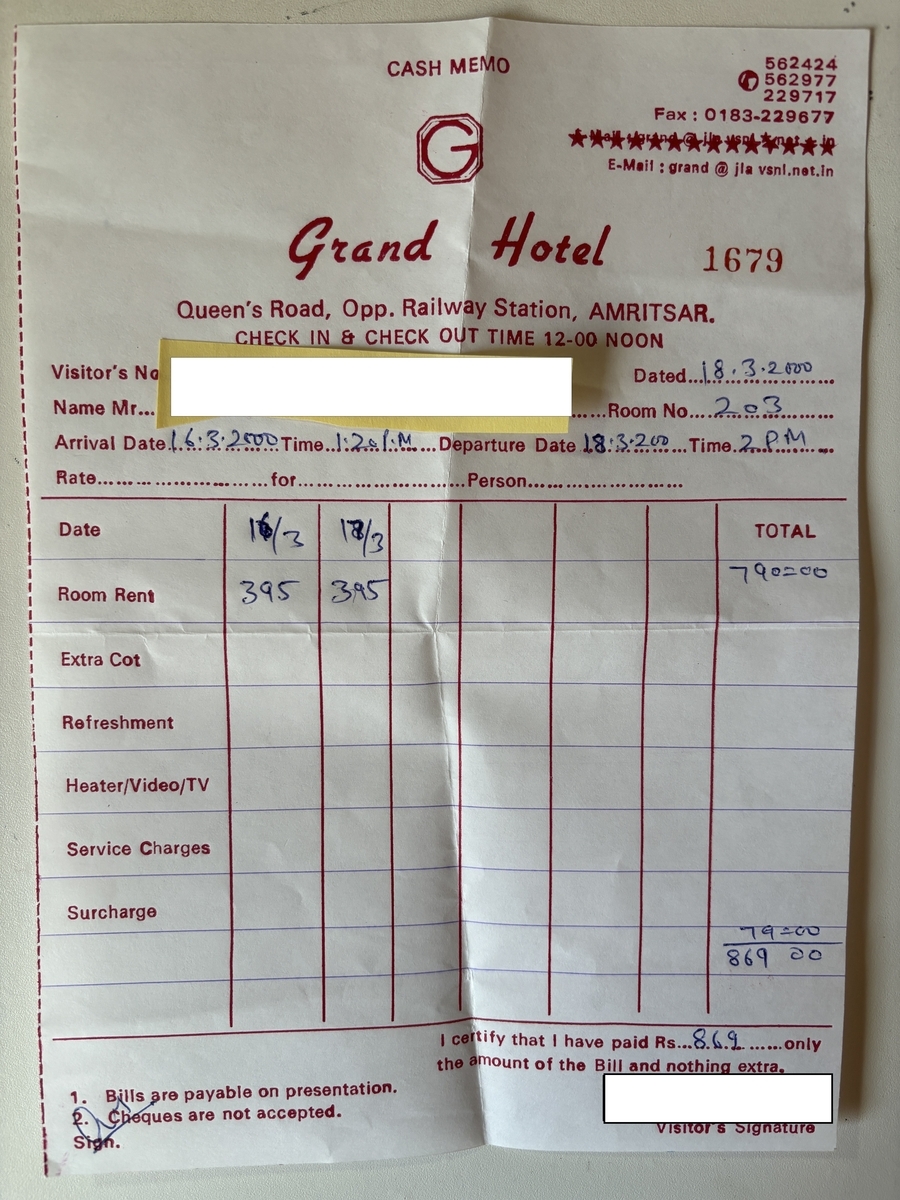 CASH MEMO
562424
562977
229717
Fax : 0183-229677
E-Mail : grand @ jla vsnl.net.in
G
Grand Hotel 1679
Queen's Road, Opp. Railway Station, AMRITSAR.
CHECK IN & CHECK OUT TIME 12-00 NOON
Visitor's No Dated...18.3.2000
Name Mr... Room No...203
Arrival Date 16.3.2000 Time 1.20 P.M Departure Date 18.3.200 Time 2 P.M
Rate... for... Person...
Date 16/3 /3 TOTAL
Room Rent 395 395 790=00
Extra Cot
Refreshment
Heater/Video/TV
Service Charges
Surcharge
79=00
869 00
I certify that I have paid Rs...869...only
the amount of the Bill and nothing extra.
1. Bills are payable on presentation.
2. Cheques are not accepted.
Sign.
Visitor's Signature